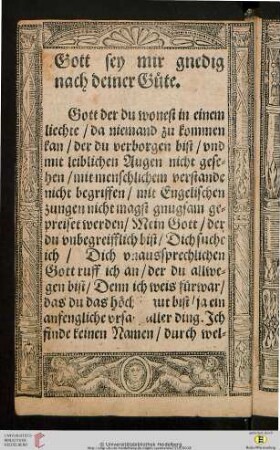 Gott sey mir gnedig
nach deiner Güte.
Gott der du wonest in einem
liechte / da niemand zu kommen
kan / der du verborgen bist / vnd
mit leiblichen Augen nicht gese-
hen / mit menschlichem verstande
nicht begriffen / mit Engelischen
zungen nicht magst gnugsam ge-
preiset werden / Mein Gott / der
du vnbegreifflich bist / Dich suche
ich / Dich vnaussprechlichen
Gott ruff ich an / der du allwe-
gen bist / Denn ich weis fürwar /
das du das höch gut bist / ja ein
anfengliche vrsa aller ding. Ich
finde keinen Namen / durch wel-
UNIVERSITÄTS-
BIBLIOTHEK
HEIDELBERG
© Universitätsbibliothek Heidelberg